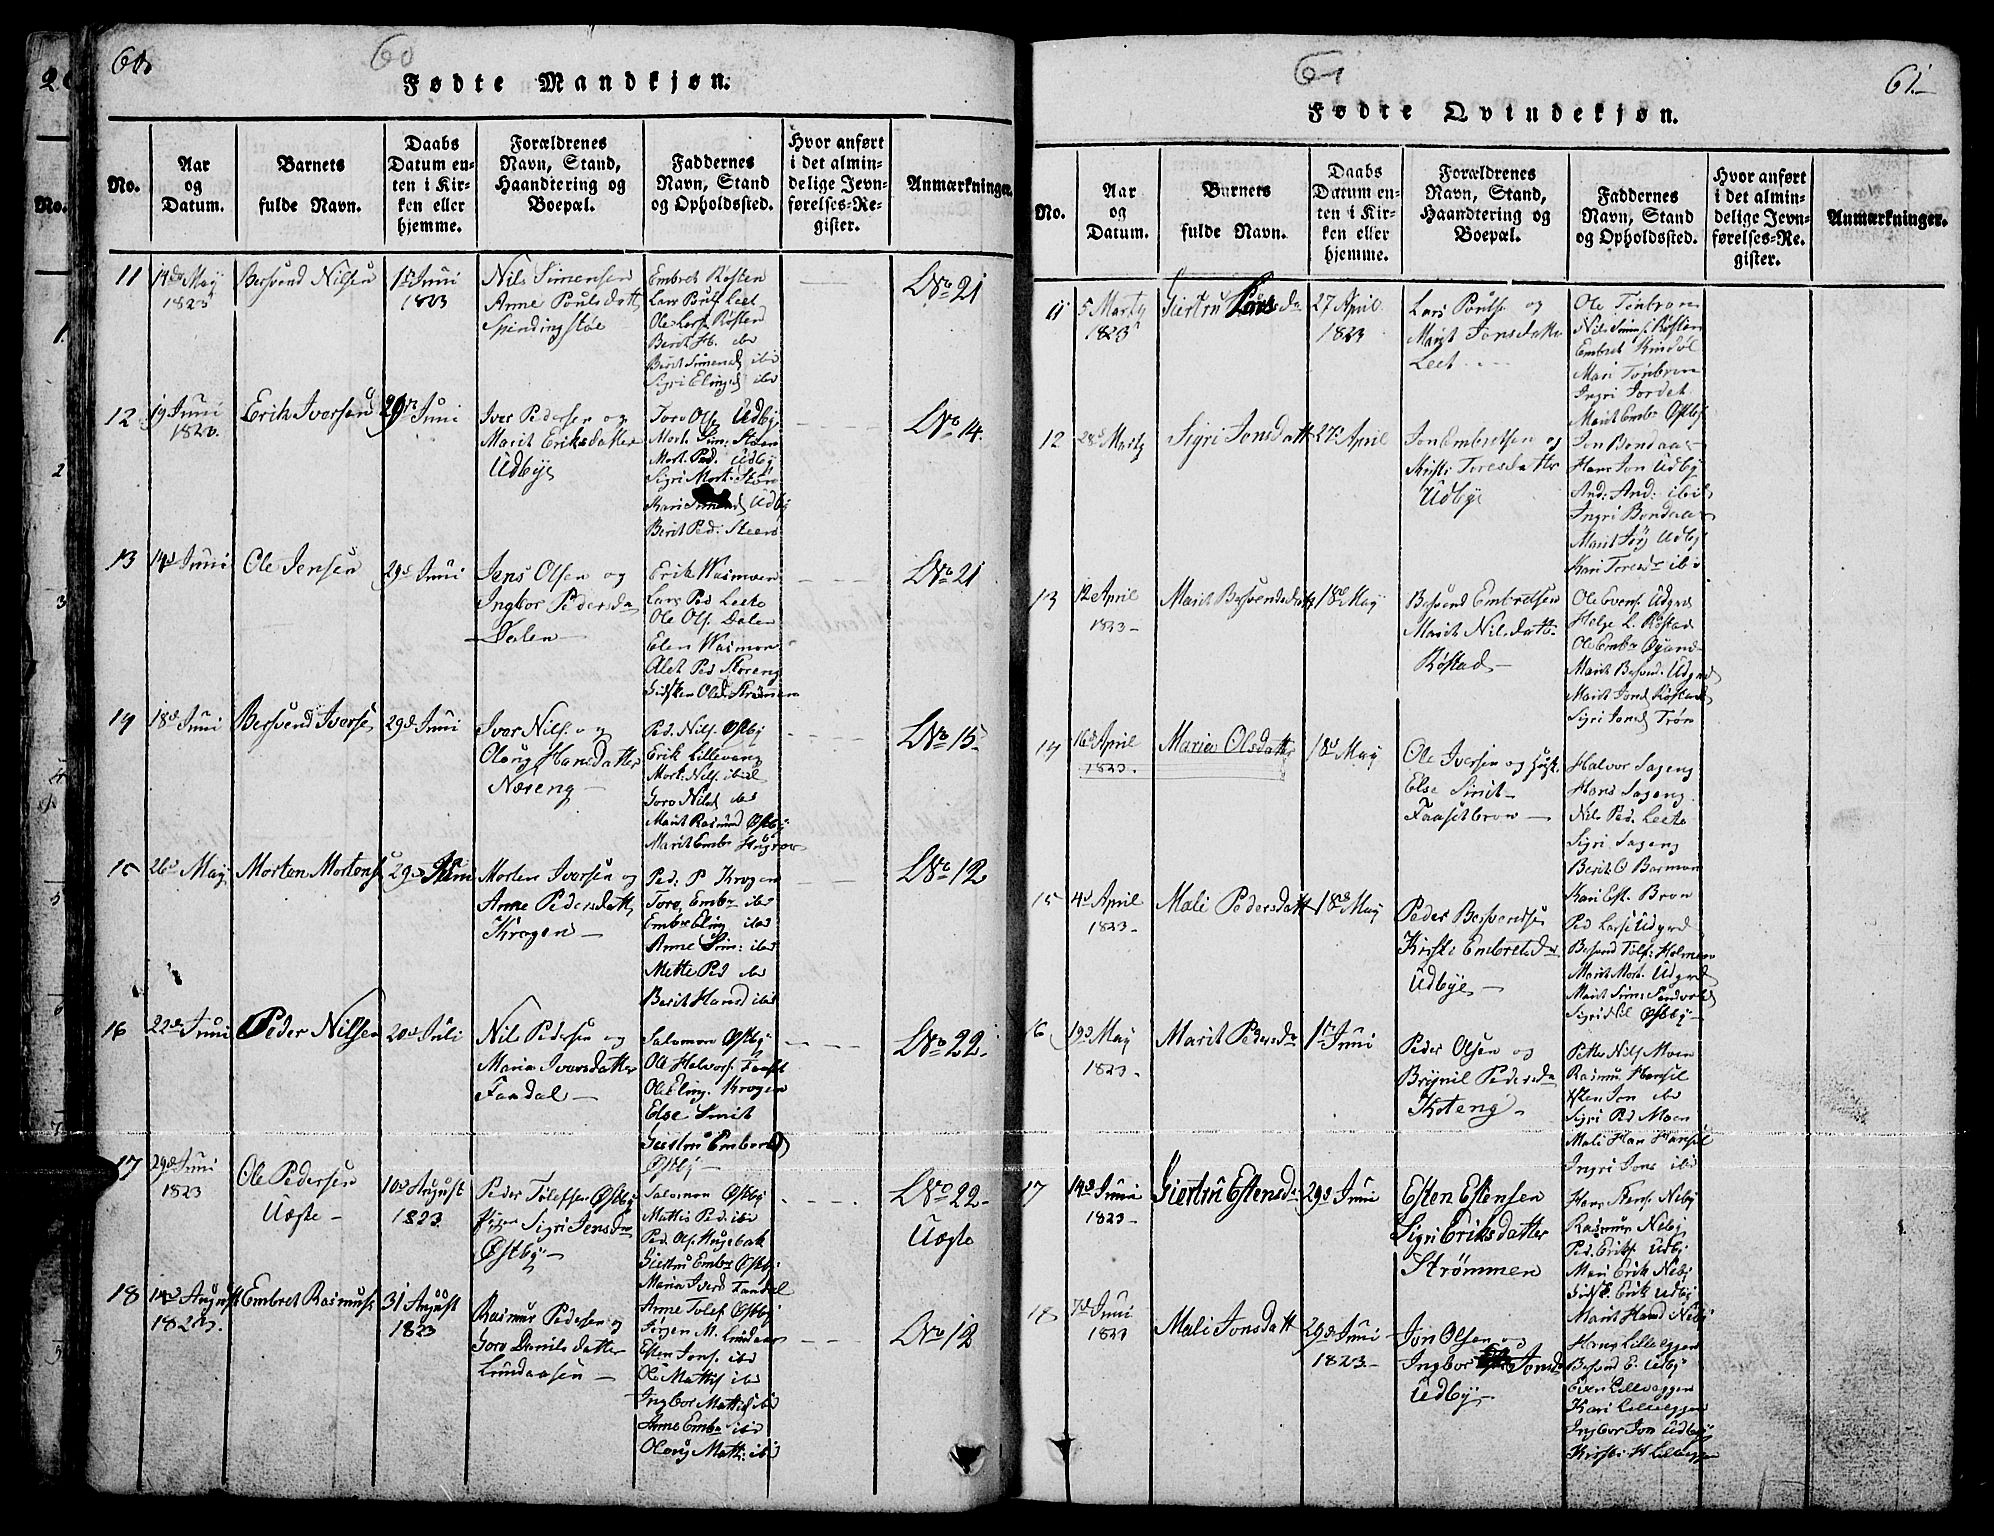 60.
60
Fødte Mandkjøn.
No.
Aar
og
Datum.
Barnets
fulde Navn.
Daabs
Datum en-
ten i Kir-
ken eller
hjemme.
Forældrenes
Navn, Stand,
Haandtering og
Boepæl.
Faddernes
Navn, Stand
og Opholdssted.
Hvor anført
i det almin-
delige Jevn-
førelses-Re-
gister.
Anmærkninger.
11
14de May
1823
Bersvend Nilsen
1st Juni
1823
Nils Simensen
Anne Poulsdatt
Embret Røsten
Lars Pouls Leet
Ole Lars. Røsten
Berit H. ibd
Berit Simensd ibd
Sigri Elingsd ibd
No 21
12
19 Juni
Erik Iversen
29de Juni
Iver Pedersen og
Marit Eriksdatter
Udbye
Toro Ols. Udby
Mort. Sim: Støen
Mort. Ped. Udby
Sigri Mort. Støen
Kari Simensd Udby
Berit Ped: Steen
No 14.
13
14d Juni
Ole Jensen
29d Juni
Jens Olsen og
Ingbor Pedersda
Dalen
Erik Wasmoen
Lars Ped Leete
Ole Ols. Dalen
Elen Wasmoen
Alet Ped Storeng
Gidsken Olsd. Strømen
No 21
14
18d Juni
Bersvend Iverse
29d Juni
Iver Nils. og
Oloug Hansdatter
Næreng
Ped. Nils. Østby
Erik Lillevang
Mort. Nils. ibid
Goro Nilsd ibd
Marit Rasmusd Østby
Marit Embr
No 15
15
26d May
Morten Mortens
29d Juni
Morten Iversen og
Anne Pedersdatt
Krogen
Ped: P Krogen
Toro Embr ibd
Embr Eling ibd
Anne Sim: ibd
Mette Ped ibd
Berit Hansd ibd
No 12
16
22de Juni
Peder Nilsen
20d Juli
Nils Pedersen og
Maria Iversdatter
Faadal
Salomon Østby
Ole Halvors. Faaset
Ole Eling. Krogen
Else Smit
Giertru Embretsd
Østby
No 22.
17
29d Juni
1823
Ole Pedersen
Uægte
10d August
1823
Peder Tolefsen Østby
Piger Sigri Jensdr
Østby
Salomon Østby
Mattis Ped. ibd
Ped. Ols. Hugebak
Giertru Embr Østby
Maria Iversd Faadal
Anne Tolef Østby
No 22
Uægte
18
14d August
1823.
Embret Rasmuss
31 August
1823
Rasmus Pedersen og
Goro Danilsdatter
Lundaasen
Jørgen M. Lundaas
Esten Jons. ibd
Ole Mattis ibd
Ingbor Mattisd ibd
Anne Embr ibd
Oloug Matt: ibd
No 12
61
61.
Fødte Qvindekjøn.
No.
Aar
og
Datum.
Barnets
fulde Navn.
Daabs
Datum en-
ten i Kir-
ken eller
hjemme.
Forældrenes
Navn, Stand,
Haandtering og
Boepæl.
Faddernes
Navn, Stand
og Opholdssted.
Hvor anført
i det almin-
delige Jevn-
førelses-Re-
gister.
Anmærkninger.
11
5 Marty
1823
Giertru Larsda
27 April
1823
Lars Pouls. og
Marit Jonsdatter
Leet
Ole Tønbroen
Nils Sims: Røsten
Embret Kindøl
Mari Tønbroen
Ingri Jordet
Marit Embr Østby
12
28d Marty
Sigri Jonsdatt
27d April
Jon Embretsen og
Kristi Toresdatter
Udbye
Jon Bondaas
Hans Jon Udby
And: And: ibid
Ingri Bondaas
Marit Udby
Kari Toresd ibd
13
12 April
1823
Marit Bersvendsdatt
18d May
Bersvend Embretsen
Marit Nilsdatte
Røstad
Ole Evens. Udgrd
Helge L. Røstad
Ole Embr Øyan
Marit Bersvend. Udgrd
Marit Jonsd Røsten
Sigri Jonsd Trøn
14
16d April
1823.
Maria Olsdatter
18d May
Ole Iversen og Hust.
Else Smit
Faasetbroen
Halvor Sageng
Hans Sageng
Nils Ped. Leete
Sigri Sageng
Berit O Barmoen
Kari Est. Broen
15
4d April
1823.
Mali Pedersdatt
18d May
Peder Bersvendse
Kirsti Embretsdr
Udbye
Ped Lars. Udgrd
Bersvend Tolf: Holmen
Marit Mort. Udgrd
Marit Sim: Sandvold
Sigri Nil Østby
16
19d May
1823.
Marit Pedersdr
1st Juni
Peder Olsen og
Brynil Pedersda
Koteng
Petter Nils. Moen
Rasmus Hansil
Esten Jon ibd
Sigri Ped Moen
Mali Han Hansil
Ingri Jons ibd
17
14d Juni
1823
Giertru Estensd
29d Juni
Esten Estensen
Sigri Eriksdatter
Strømmen
Hans Neby
Rasmus Neby
Ped. Eriks. Udby
Mari Erik Neby
Gidsk. Erik Udby
Marit Hansd Neby
18
7d Juni
Mali Jonsdatt
29d Juni
1823
Jon Olsen og
Ingbor Jonsda
Udby
Hans Lilleeggen
Bersvend E. Udby
Even Lilleeggen
Kari Lilleeggen
Ingbor Jon Udby
Kirsti H Lilleeggen